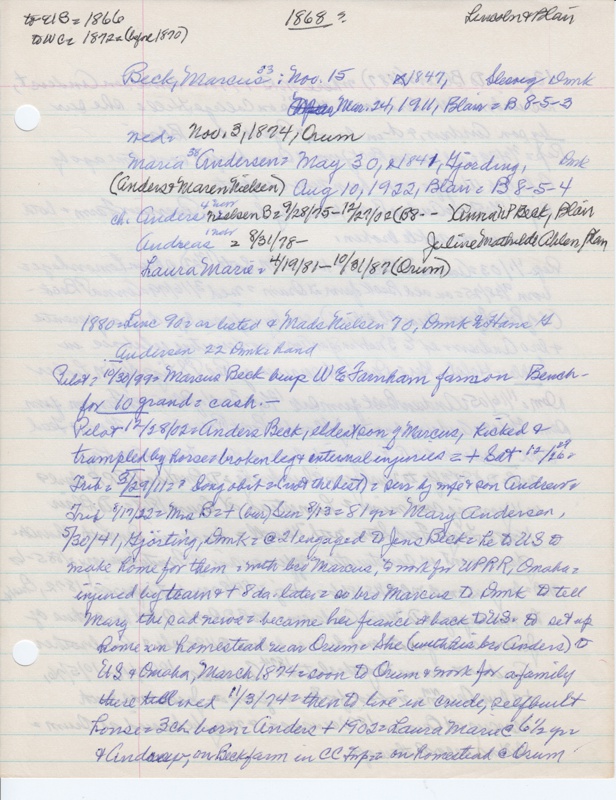 to WB = 1866 1868 ? Lincoln & Blair
to WC = 1872 = (before 1870)
Beck, Marcus 23 : Nov. 15 1847, Slesvig Dmk
Mar. 24, 1911, Blair = B 8-5-3
wed = Nov. 3, 1874, Orum
Maria 38 Andersen = May 30, 1841, Gjording, Dmk
(Anders & Maren Nielsen) Aug 10, 1922, Blair = B 8-5-4
ch. Anders Nielsen B = 9/28/75 - 12/27/02 (B8 - - Anna Beck, Blair
Andreas = 8/31/78 - Juline Mathilde
Laura Marie = 4/19/81 - 10/31/87 (Orum)
1880 = Linc 90 = as listed & Mads Nielsen 70, Dmk & Hans
Andersen 22 Dmk = hand
Pilot = 10/30/99 = Marcus Beck buys W E Farnham farm on Bench -
for 10 grand = cash. -
Pilot 12/28/02 = Anders Beck, eldest son of Marcus, kicked &
trampled by horse = broken leg & internal injuries = + Sat 12/
Trib = 3/29/11 = long obit = (not the best) = surv by wife & son Andrew =
Trib 8/17/22 = Mrs B = + (bur) Sun 8/13 = 81 yr = Mary Andersen,
5/30/41, Gjörting, Dmk = @ 21 engaged to Jens Beck = he to US to
make home for them = with bro Marcus, to work for UPRR, Omaha =
injured by team & + 8 da. later = so bro Marcus to Dmk to tell
Mary the sad news = became her fiance & back to US to set up
home on homestead near Orum = She (with bro Anders) to
US & Omaha, March 1874 = soon to Orum & work for a family
there till wed 11/3/74 = then to live in crude, selfbuilt
house = 3 ch. born = Anders + 1902 = Laura Marie @ 6½ yr
& Andrew, on Beck farm in CC Twp = on homestead @ Orum